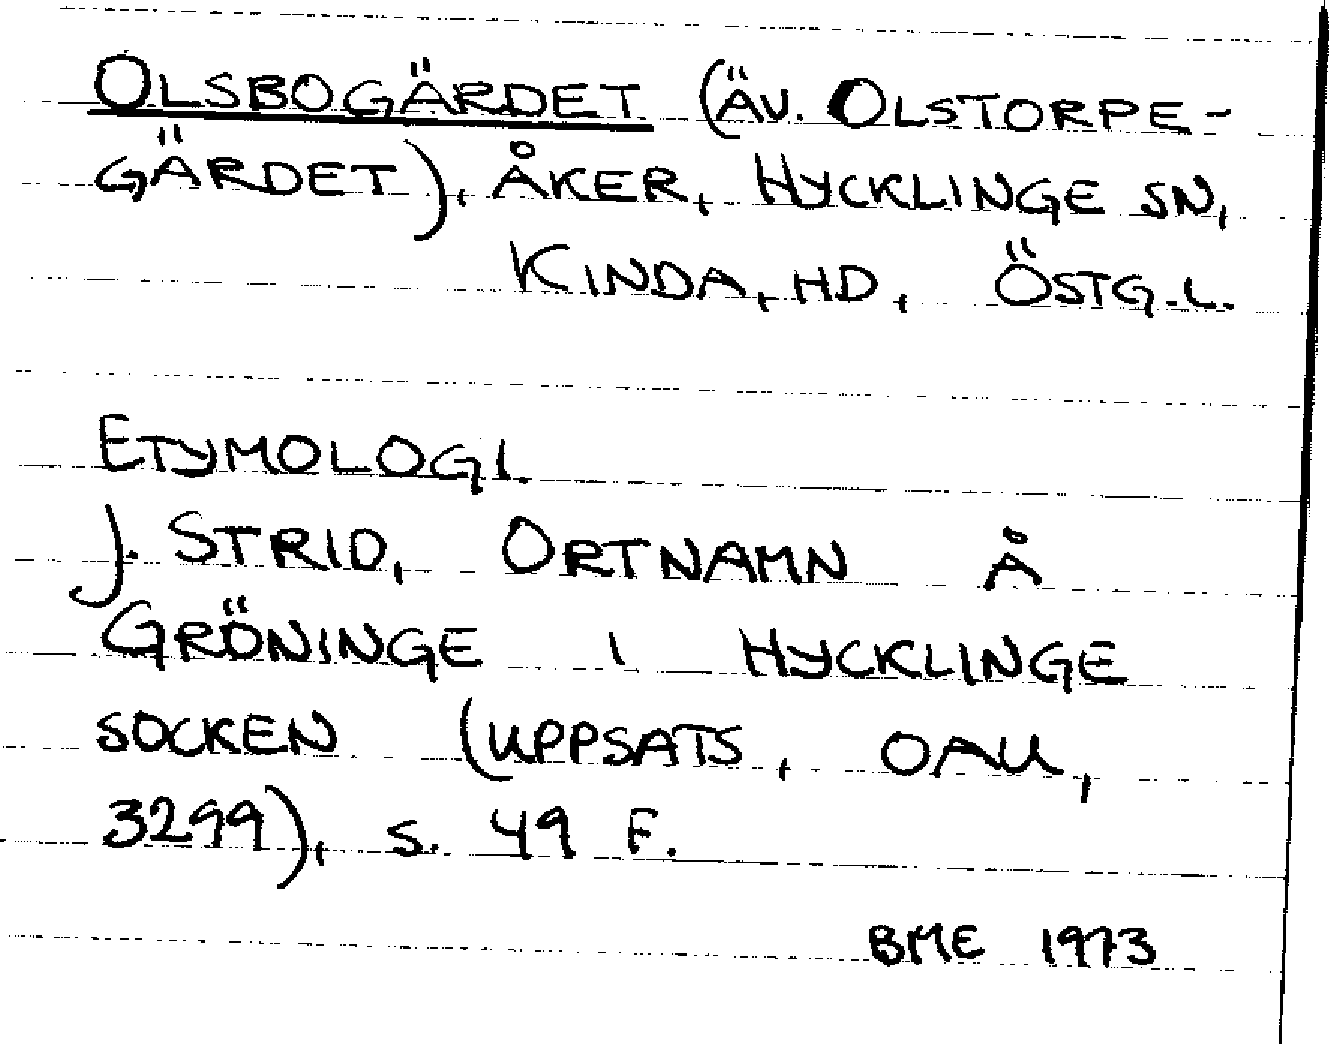 OLSBOGÄRDET (ÄV. OLSTORPE-
GÄRDET), ÅKER, HYCKLINGE SN,
KINDA, HD, ÖSTG.L.
ETYMOLOGI.
J. STRID, ORTNAMN Å
GRÖNINGE I HYCKLINGE
SOCKEN (UPPSATS, OAU,
3299), S. 49 F.
BME 1973